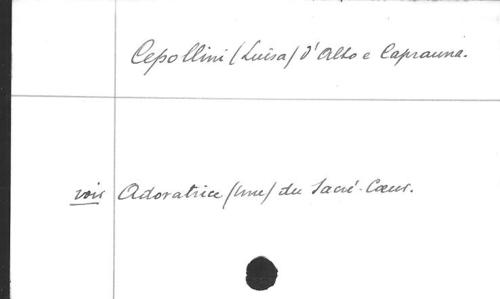 Cepollini (Luisa) d'Alto e Caprauna.
voir Adoratrice (une) du Sacré-Cœur.